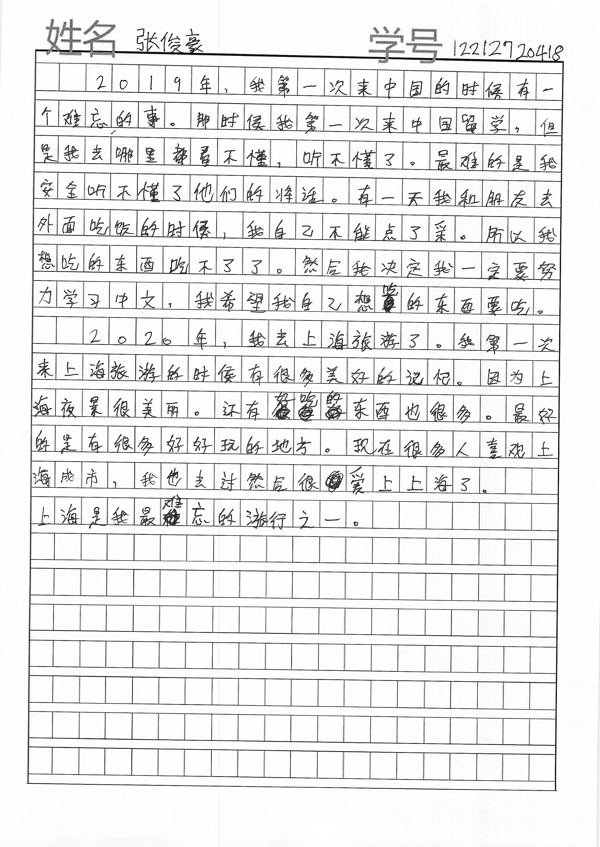 姓名 张俊豪 学号 12212720418
2019年，我第一次来中国的时候有一
个难忘的事。那时候我第一次来中国留学，但
是我去哪里都看不懂，听不懂了。最难的是我
安全听不懂了他们的将话。有一天我和朋友去
外面吃饭的时候，我自己不能点了采。所以我
想吃的东西吃不了了。然后我决定我一定要努
力学习中文，我希望我自己想吃的东西要吃。
2020年，我去上海旅游了。我第一次
来上海旅游的时候有很多美好的记忆。因为上
海夜景很美丽。还有好吃的东西也很多。最好
的是有很多好好玩的地方。现在很多人喜欢上
海成市，我也去过然后很爱上上海了。
上海是我最难忘的旅行之一。